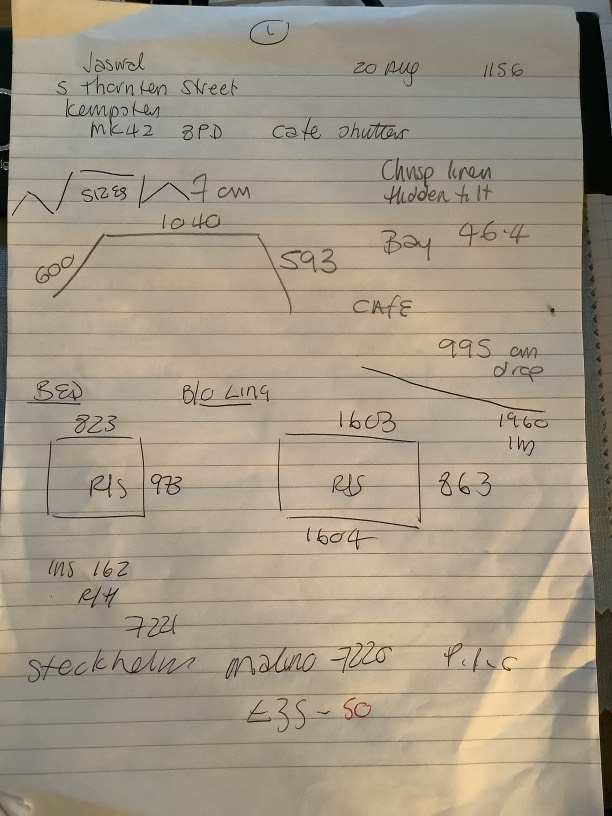 1
Jaswal 20 Aug 1156
5 Thornton Street
Kempston
MK42 8PD cafe shutters
SIZES 7 cm
Hidden tilt
1040
Bay 46.4
600 593
CAFE
995 cm
drop
BED B/O LING
823 1603 1960
R/S 973 R/S 863
1604
Ins 162
R/H
7221
Stockholm 7220
£35-50